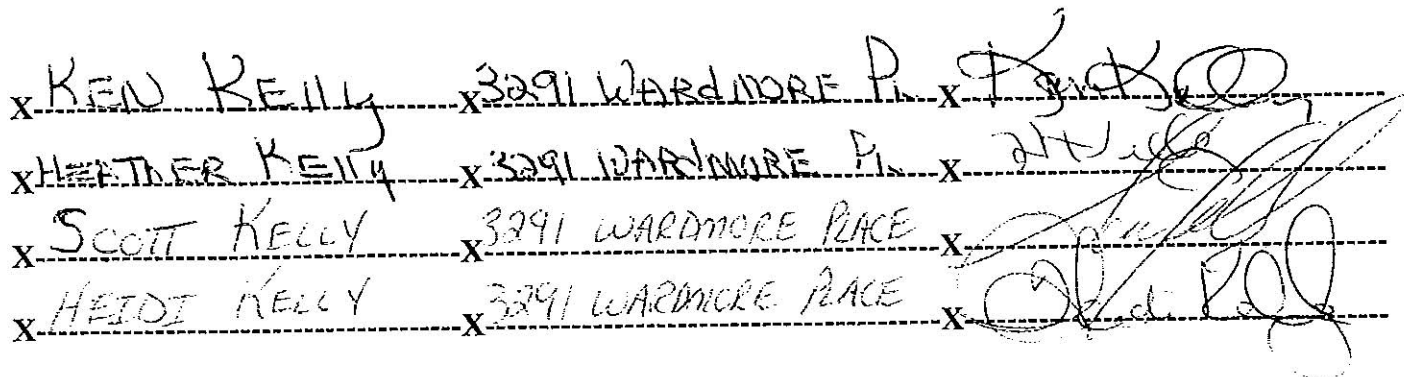 x KEN KEllY x 3291 WARdMORE PL x Ken Kelly
x HEATHER KEllY x 3291 WARdMORE PL x
x SCOTT KELLY x 3291 WARDMORE PLACE x
x HEIDI KELLY x 3291 WARDMORE PLACE x Heidi Kelly